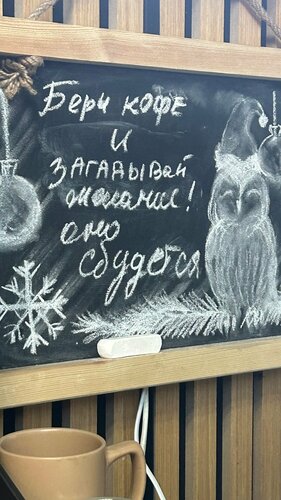 Бери кофе
и
загадывай
желание!
оно
сбудется